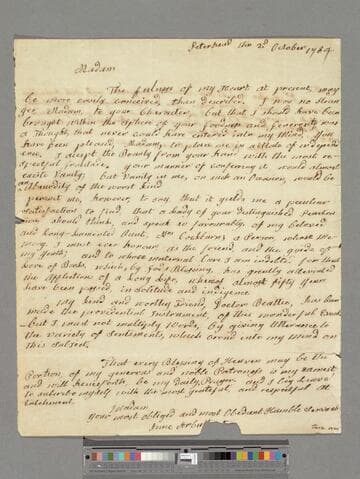 Peterhead the 2d October 1784
Madam
The fulness of my Heart at present may
be more easily conceived, than described. I was no stran
ger Madam, to your Character, but that I should have been
brought within the sphere of your Goodness and generosity was
a Thought that never could have entered into my Mind. You
have been pleased, Madam, to place me in a State of independ
ence, I accept the Bounty from your hand with the most re=
spectful gratitude, your manner of conferring it would almost
excite Vanity, but Vanity in me, on such an Occasion, would be
an Absurdity of the worst kind
permit me, however, to say that it yields me a peculiar
satisfaction to find that a Lady of your Distinguished
should think and speak so favourably, of my beloved
and long-lamented Aunt Mrs Cockburn; a Person, whose Me
mory, I must ever honour as the friend and the guide of
my Youth; and to whose maternal Care I am indebted for that
Love of Books, which, by Gods Blessing, has greatly alleviated
the Afflictions of a Long Life, whereof almost fifty Years
have been passed in solitude and indigence
My kind and worthy Friend, Doctor Beattie, has been
made the providential Instrument, of this wonderful Event
—but I must not multiply Words, by giving Utterance to
the variety of Sentiments, which crowd into my Mind on
this Subject.
That every Blessing of Heaven may be the
Portion, of my generous and noble Patroness is my earnest,
and will henceforth be my daily Prayer and I beg Leave
to subscribe myself with the most grateful, and respectful At
tatchment
Madam
Your most obliged and most Obedient Humble Servant
June Arbuthnot
turn over